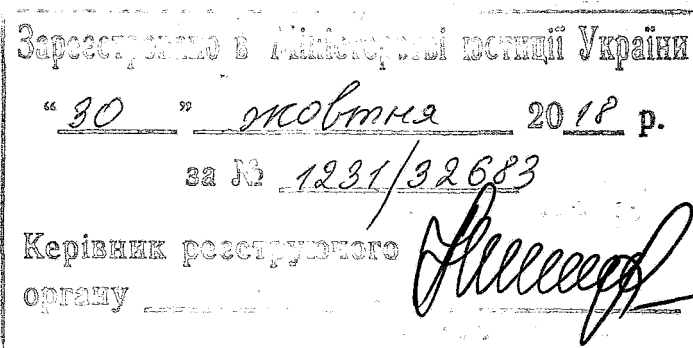 Зареєстровано в Міністерстві юстиції України
“30” жовтня 2018 р.
за № 1231/32683
Керівник реєструючого
органу